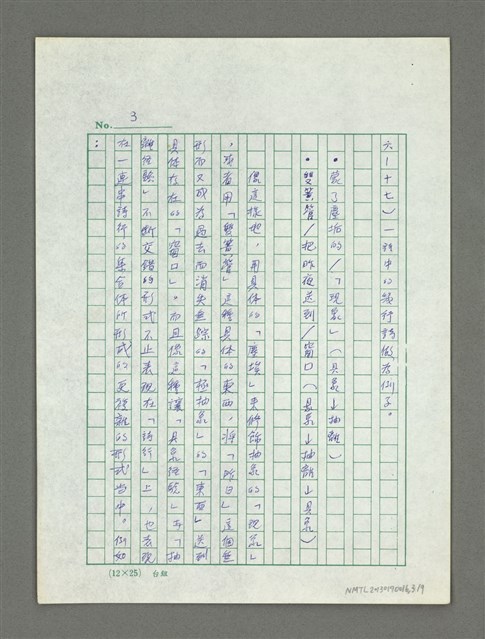 No. 3
六—十七)一詩中的幾行詩做為例子。
•裝了塵垢的/「現象」(具象→抽離)
•雙簧管/把昨夜送到/窗口(具象→抽離→具象)
像這樣地,用具體的「塵埃」來修飾抽象的「現象」
,或者用「雙簧管」這種具體的東西,將「昨日」這個無
形而又成為過去而消失無踪的「極抽象」的「東西」送到
具體存在的「窗口」。而且像這種讓「具象經驗」与「抽
離經驗」不斷交錯的形式不止表現在「詩行」上,也表現
在一連串詩行的集合体所形成的更複雜的形式當中。例如
:
(12×25) 台組
NMTL20130190016.3.19